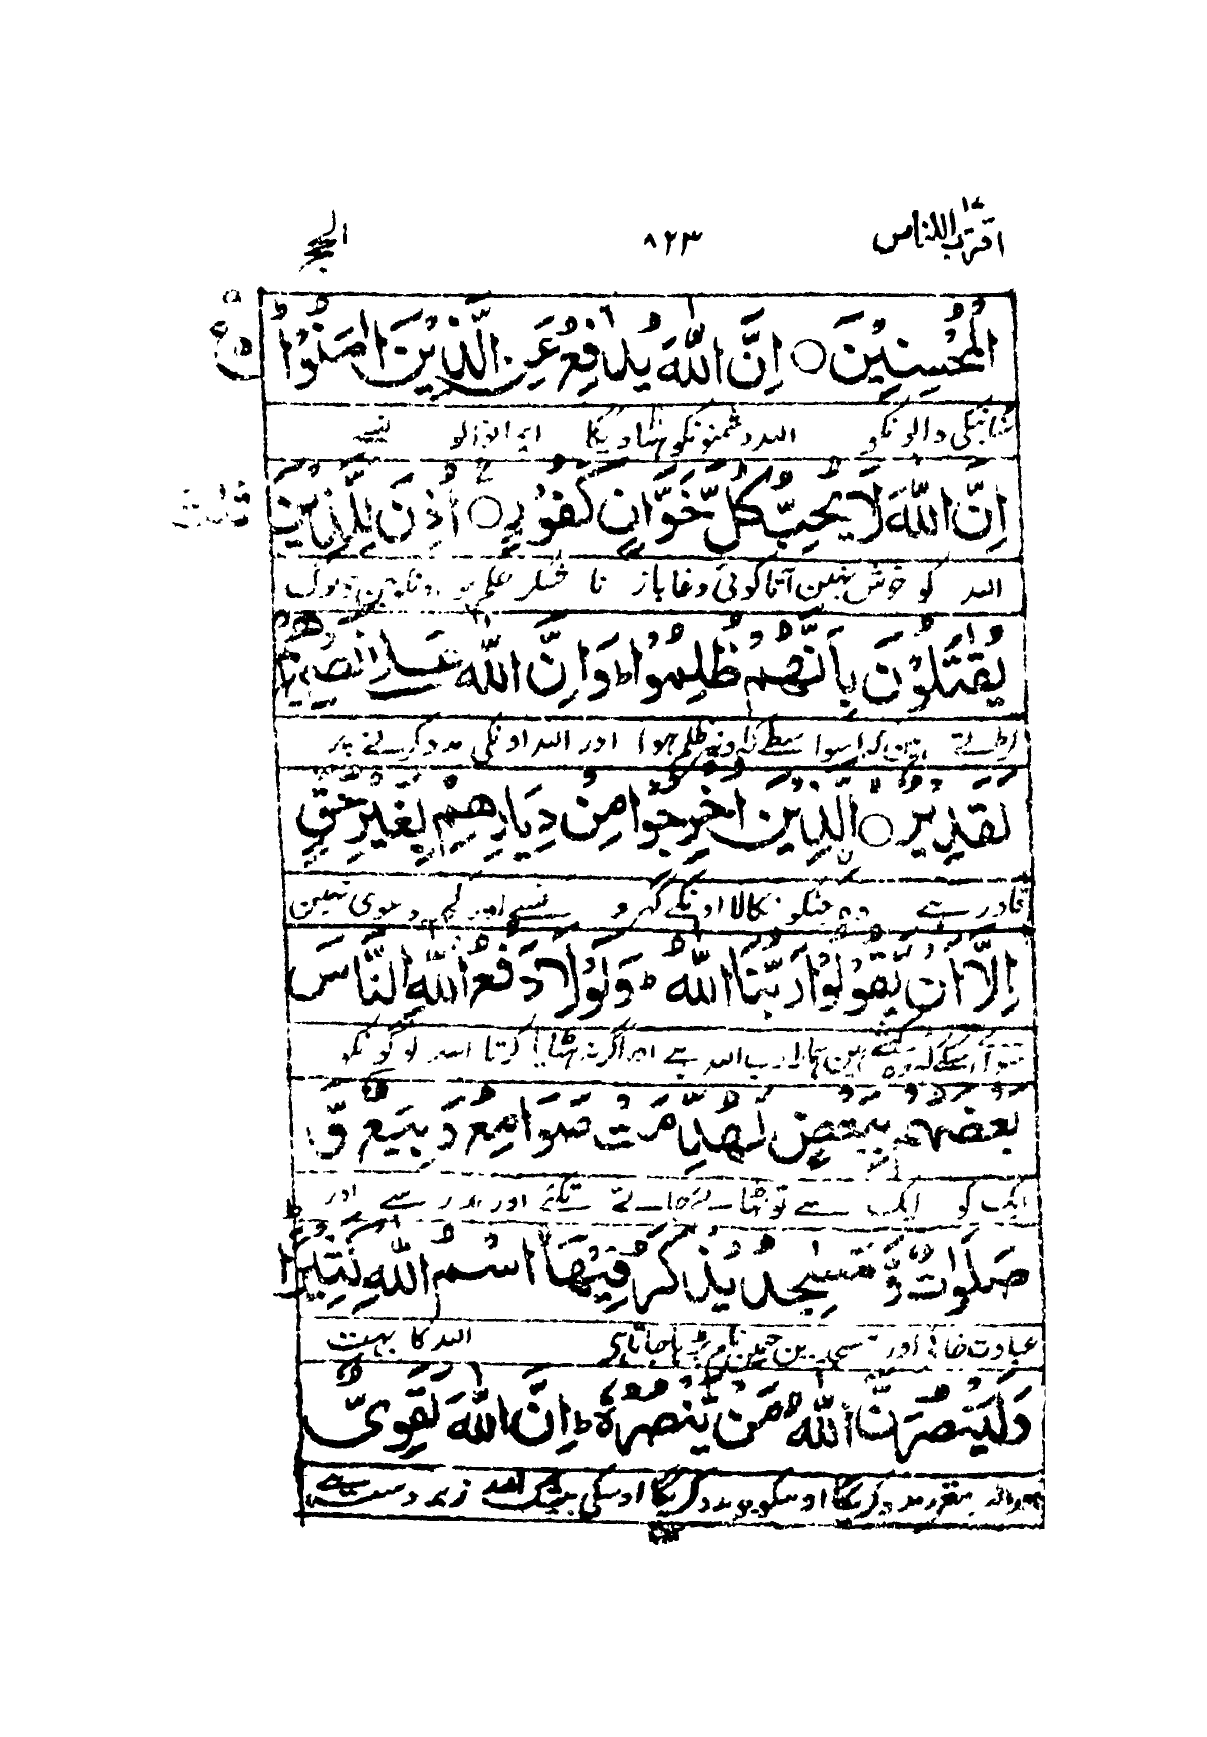 اقترب للناس ١٧
٨٢٣
الحج
الْمُحْسِنِيْنَ ○ اِنَّ اللّٰهَ يُدٰفِعُ عَنِ الَّذِيْنَ اٰمَنُوْا ط
والونکو اللہ دشمنونکو ہٹا دیگا ایمان والو سے
اِنَّ اللّٰهَ لَا يُحِبُّ كُلَّ خَوَّانٍ كَفُوْرٍ ○ اُذِنَ لِلَّذِيْنَ
ثلث
اللہ کو خوش نہین آتا کوئی دغا باز نا شکر حکم ہوا
يُقٰتَلُوْنَ بِاَنَّهُمْ ظُلِمُوْا ط وَاِنَّ اللّٰهَ عَلٰى نَصْرِهِمْ
لڑتے ہین اسواسطے کہ اونپر ظلم ہوا اور اللہ اونکی مدد کرنے پر
لَقَدِيْرٌ ○ الَّذِيْنَ اُخْرِجُوْا مِنْ دِيَارِهِمْ بِغَيْرِ حَقٍّ
قادر ہے وہ جنکو نکالا اونکے گھرو نسے اور کچھ دعوی نہین
اِلَّآ اَنْ يَّقُوْلُوْا رَبُّنَا اللّٰهُ ط وَلَوْلَا دَفْعُ اللّٰهِ النَّاسَ
سوا اسکے کہ وہ کہتے ہین ہمارا رب اللہ ہے اور اگر نہ ہٹایا کرتا اللہ لوگونکو
بَعْضَهُمْ بِبَعْضٍ لَّهُدِّمَتْ صَوَامِعُ وَبِيَعٌ وَّ
ایک کو ایک سے تو ڈھائے جاتے تکئے اور مدرسے اور
صَلَوٰتٌ وَّمَسٰجِدُ يُذْكَرُ فِيْهَا اسْمُ اللّٰهِ كَثِيْرًا ط
عبادت خانے اور مسجدین جنمین نام پڑہا جاتا ہی اللہ کا بہت
وَلَيَنْصُرَنَّ اللّٰهُ مَنْ يَّنْصُرُهٗ ط اِنَّ اللّٰهَ لَقَوِيٌّ
اور اللہ مقرر مدد کریگا اوسکو جو مدد کریگا اوسکی بیشک اللہ زبردست ہے